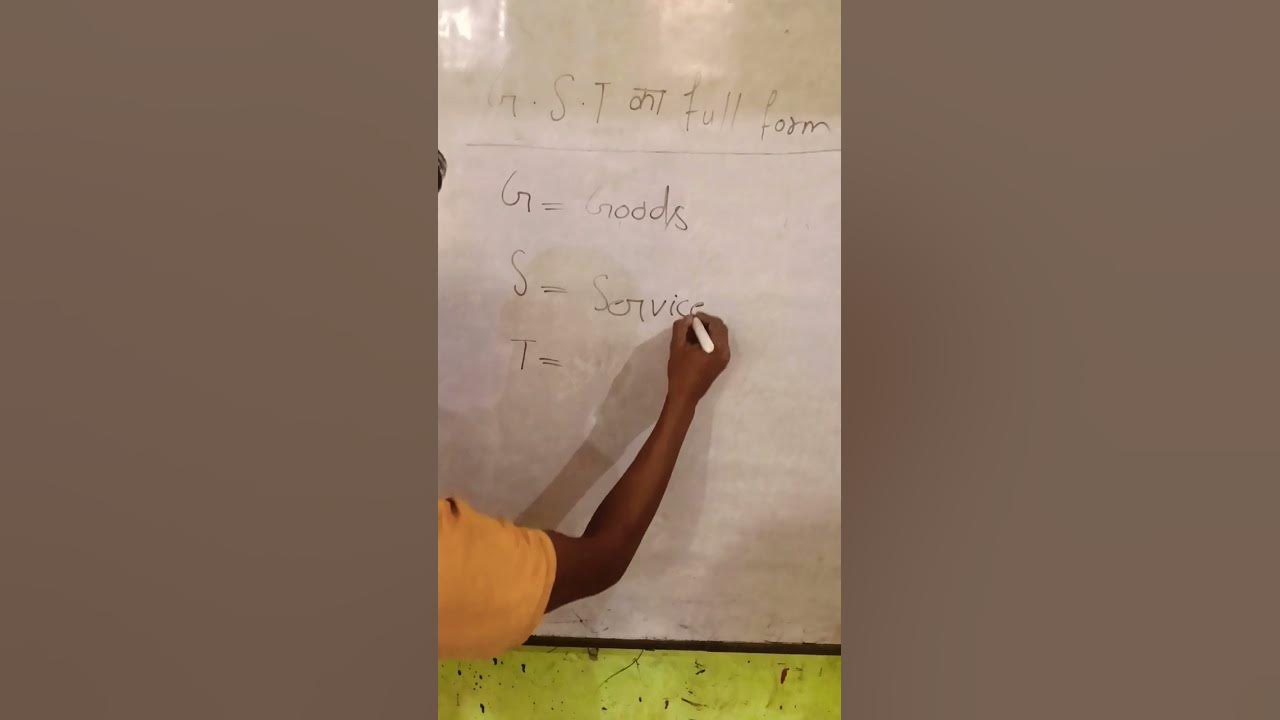 G.S.T का full form
G = Goods
S = Service
T =